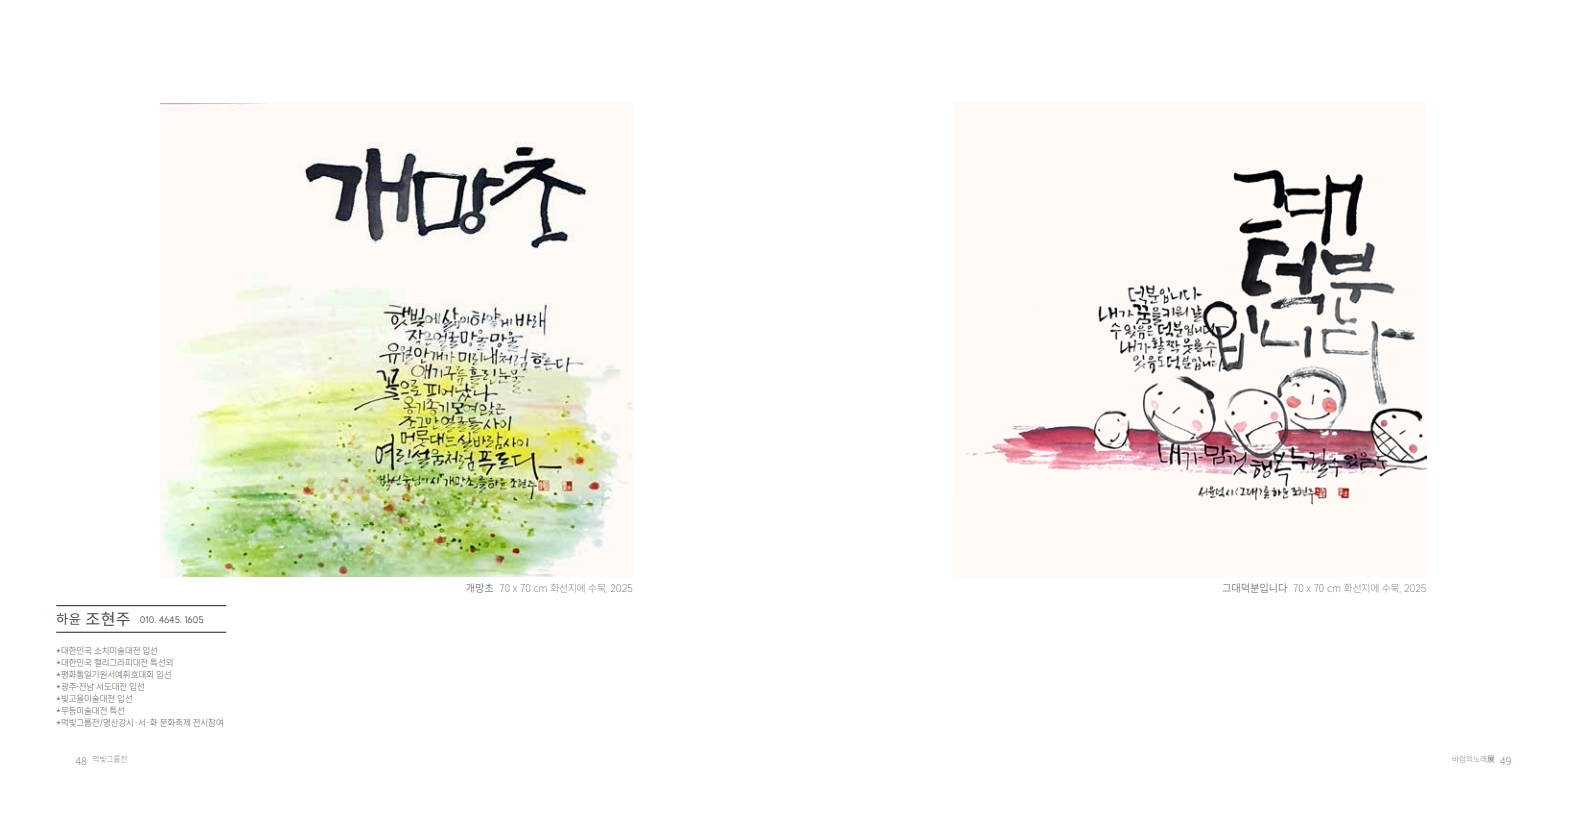 개망초
햇빛에 살이 하얗게 바래
작은 얼굴 마울마울
유월 안개가 미리내처럼 흐른다
애기구름 흘린 눈물
꽃으로 피어났나
옹기종기 모여 앉은
조그만 얼굴들 사이
머뭇대는 실바람 사이
여린 설움처럼 푸르다
개망초를 하윤 조현주
개망초 70 x 70 cm 화선지에 수묵, 2025
하윤 조현주 010. 4645. 1605
*대한민국 소치미술대전 입선
*대한민국 캘리그라피대전 특선외
*평화통일기원서예휘호대회 입선
*광주·전남 서도대전 입선
*빛고을미술대전 입선
*무등미술대전 특선
*먹빛그룹전/영산강시·서·화 문화축제 전시참여
48 먹빛그룹전
그대
덕분
입니다
덕분입니다
내가 꿈을 키워 갈
수 있음은 덕분입니다
내가 활짝 웃을 수
있음도 덕분입니다
내가 맘껏 행복 누릴 수 있음도
시 <그대>를 하윤 조현주
그대덕분입니다 70 x 70 cm 화선지에 수묵, 2025
바람의노래展 49